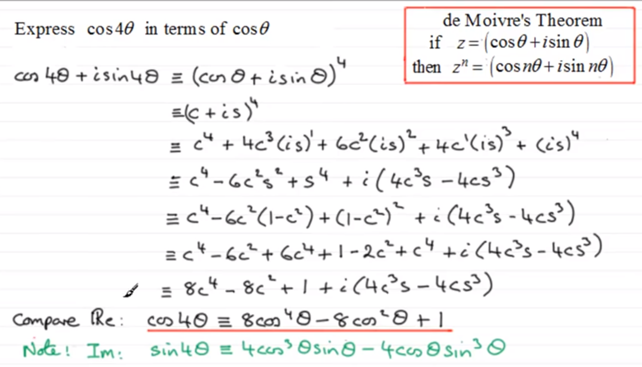 Express cos4θ in terms of cosθ
de Moivre's Theorem
if z = (cosθ + i sinθ)
then zⁿ = (cos nθ + i sin nθ)
cos 4θ + i sin 4θ ≡ (cos θ + i sin θ)⁴
≡ (c + is)⁴
≡ c⁴ + 4c³(is)¹ + 6c²(is)² + 4c¹(is)³ + (is)⁴
≡ c⁴ − 6c²s² + s⁴ + i(4c³s − 4cs³)
≡ c⁴ − 6c²(1−c²) + (1−c²)² + i(4c³s − 4cs³)
≡ c⁴ − 6c² + 6c⁴ + 1 − 2c² + c⁴ + i(4c³s − 4cs³)
≡ 8c⁴ − 8c² + 1 + i(4c³s − 4cs³)
Compare Re: cos 4θ ≡ 8cos⁴θ − 8cos²θ + 1
Note! Im: sin 4θ ≡ 4cos³θ sinθ − 4cosθ sin³θ